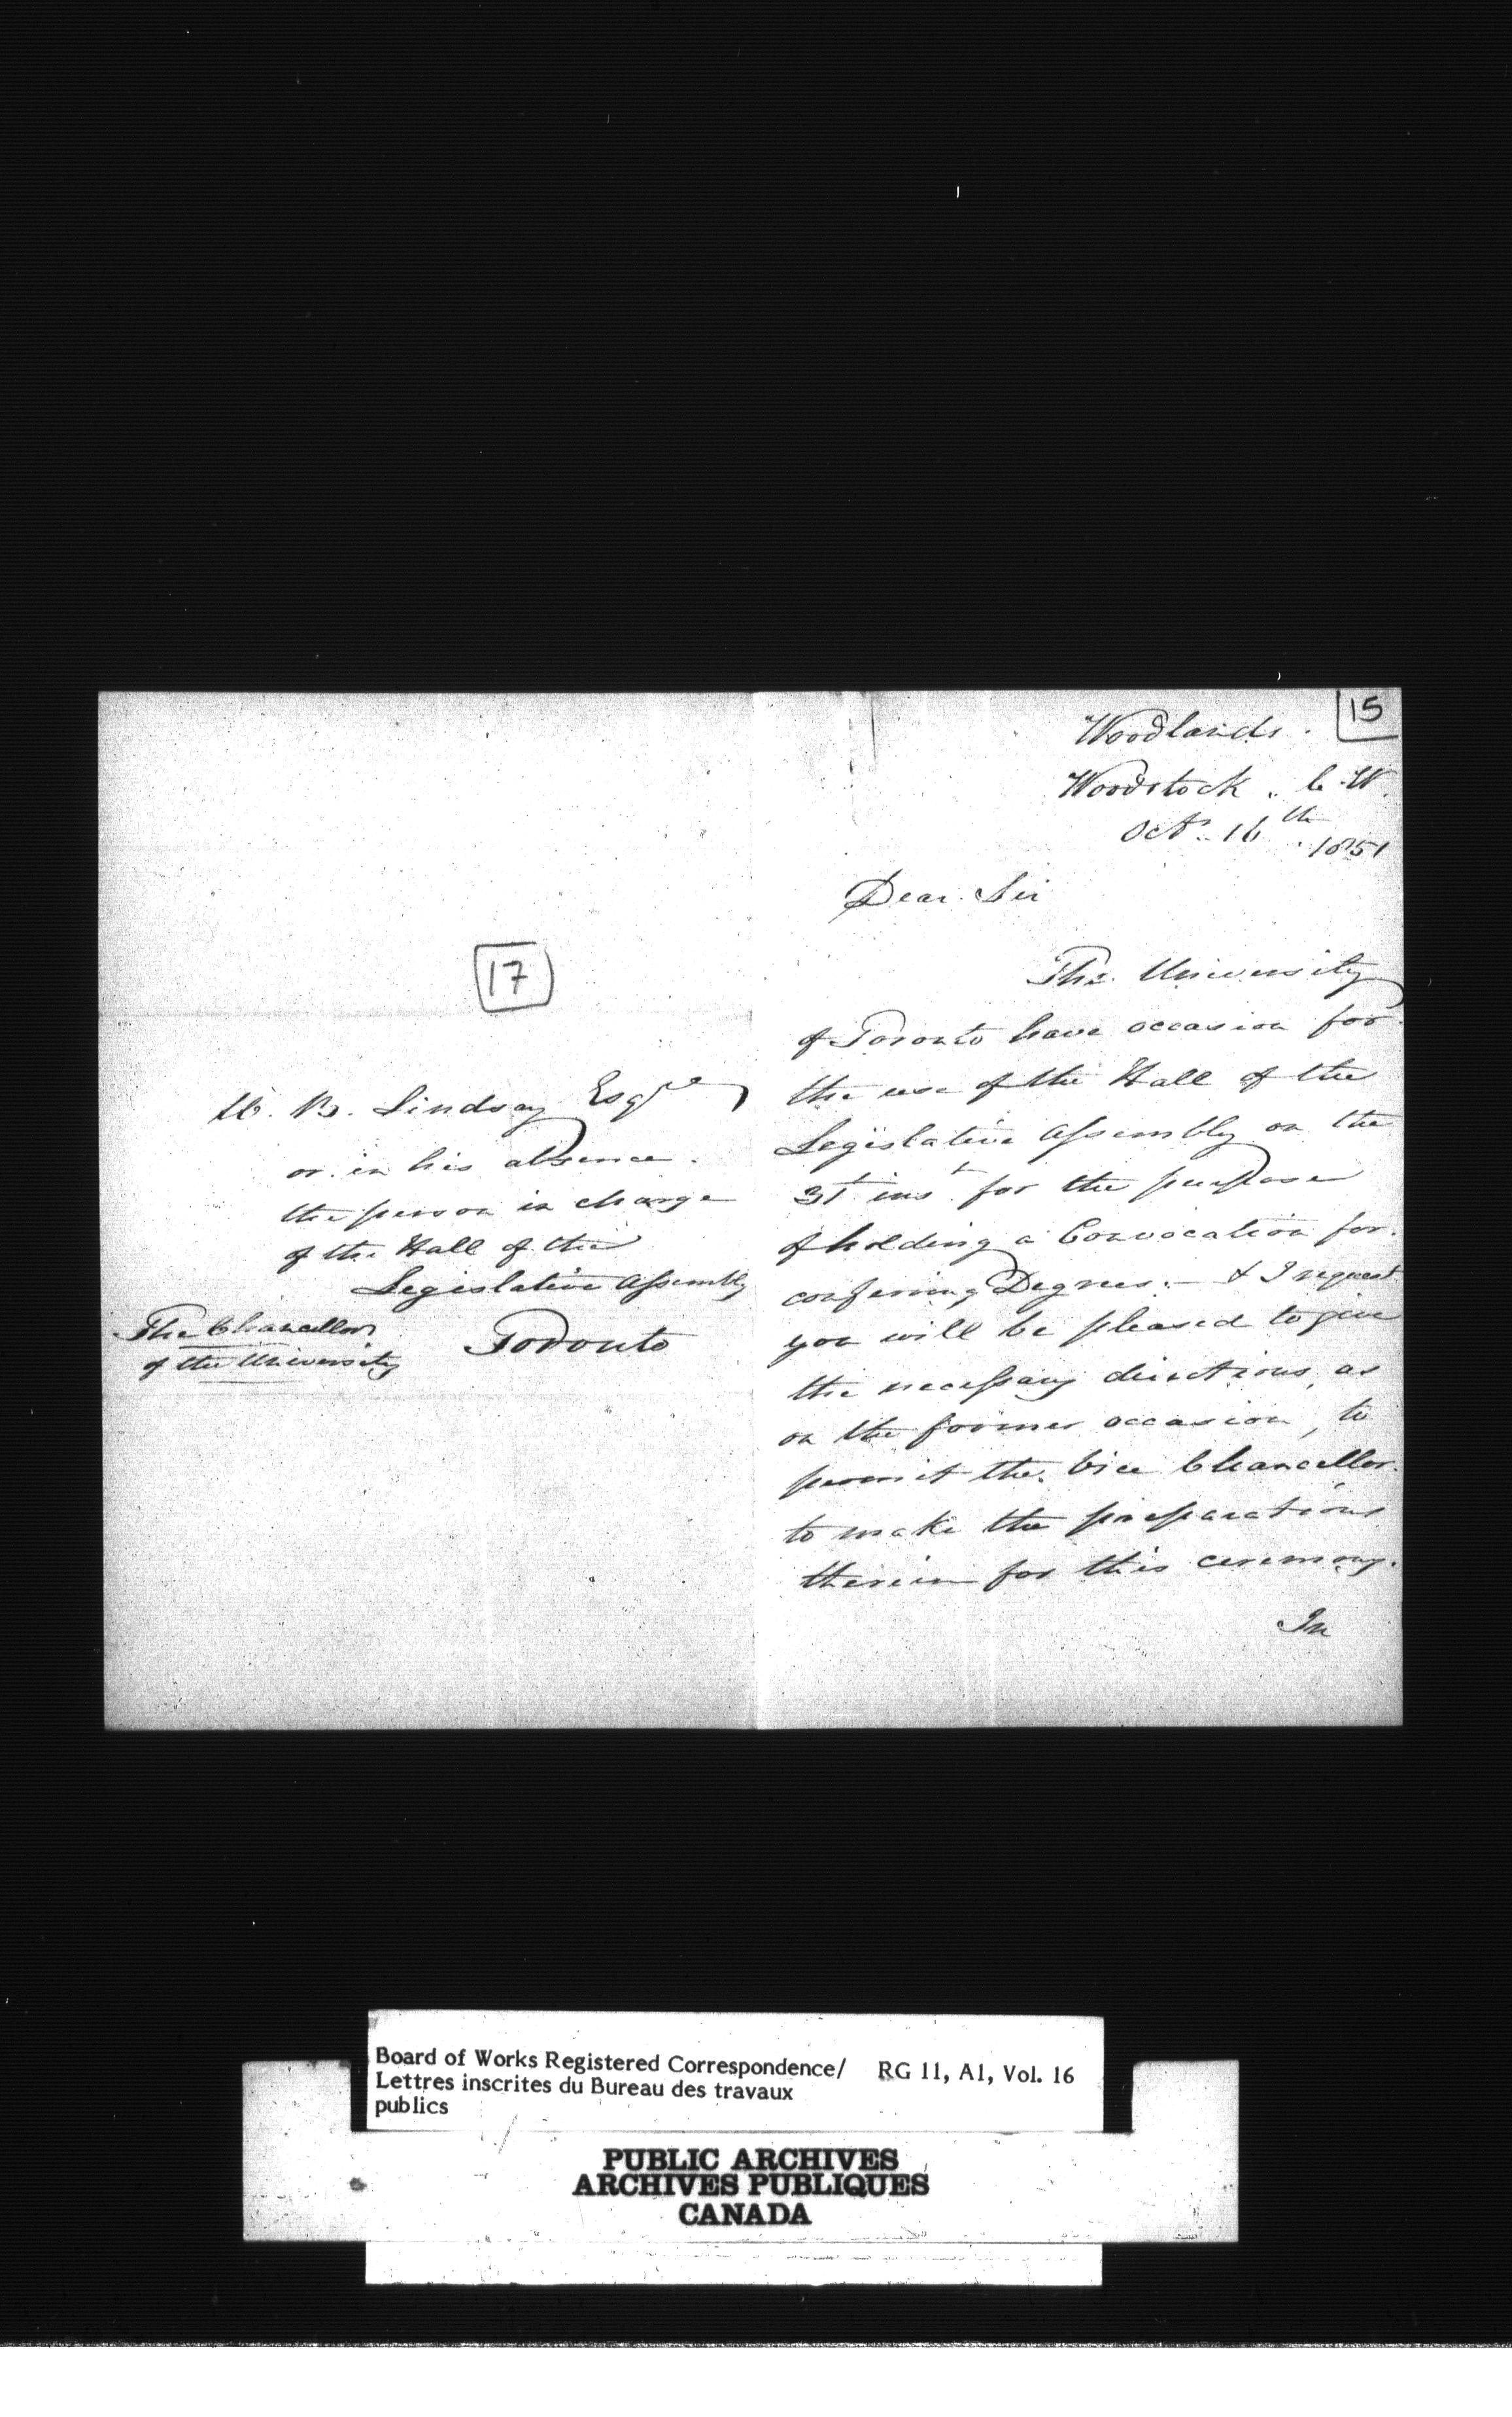 17
W. B. Lindsay Esqre
or in his absence
the person in charge
of the Hall of the
Legislative Assembly
Toronto
The Chancellor
of the University
15
Woodlands.
Woodstock. C. W.
Oct. 16th 1851
Dear Sir
The University
of Toronto have occasion for
the use of the Hall of the
Legislative Assembly on the
31t inst for the purpose
of holding a Convocation for
conferring Degrees:— & I request
you will be pleased to give
the necessary directions, as
on the former occasion, to
permit the Vice Chancellor
to make the preparations
therein for this ceremony.
In
Board of Works Registered Correspondence/ RG 11, A1, Vol. 16
Lettres inscrites du Bureau des travaux
publics
PUBLIC ARCHIVES
ARCHIVES PUBLIQUES
CANADA